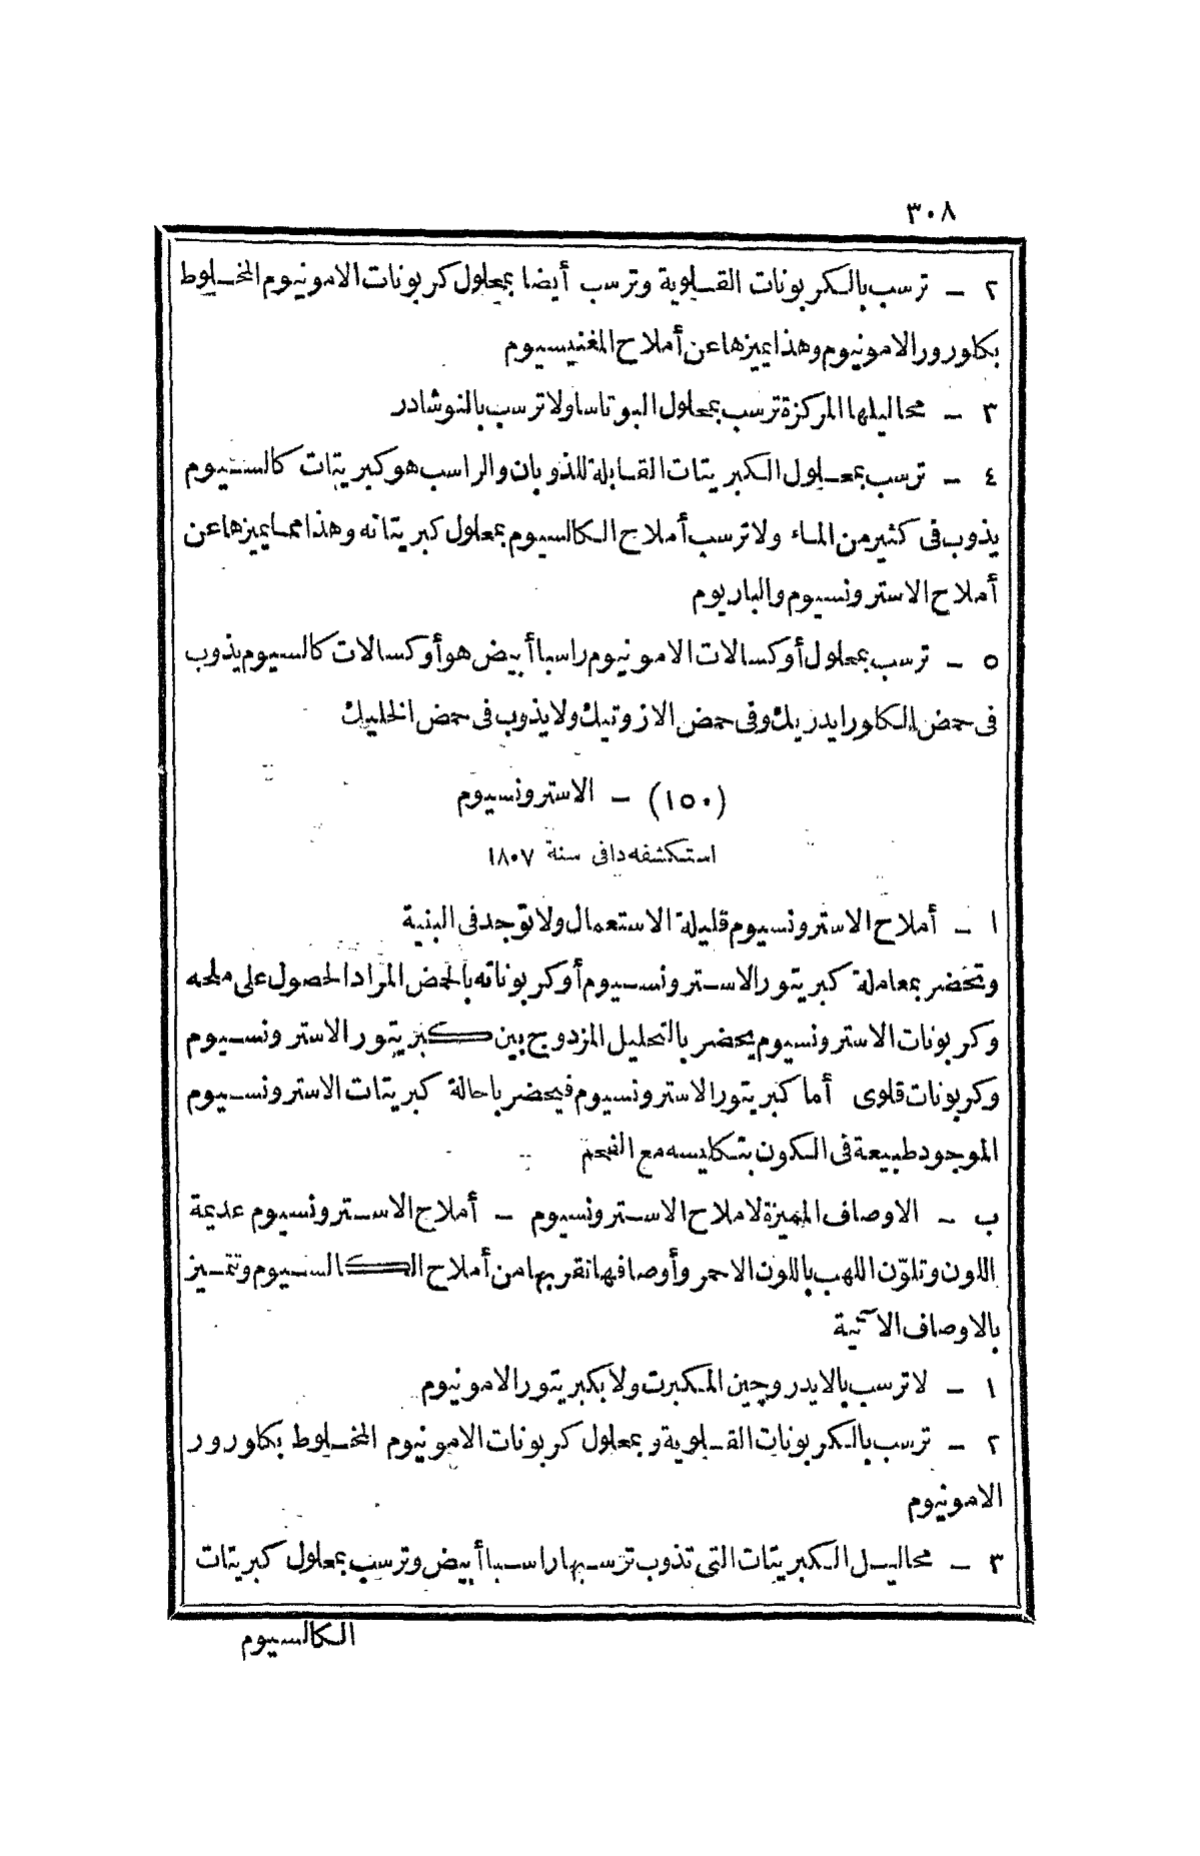 ٣٠٨
٢ ــ ترسب بالكربونات القلوية وترسب أيضا بمحلول كربونات الامونيوم المخلوط
بكلورور الامونيوم وهذا يميزها عن أملاح المغنيسيوم
٣ ــ محاليلها المركزة ترسب بمحلول البوتاسا ولا ترسب بالنوشادر
٤ ــ ترسب بمحلول الكبريتات القابلة للذوبان والراسب هو كبريتات كالسيوم
يذوب فى كثير من الماء ولا ترسب أملاح الكالسيوم بمحلول كبريتاته وهذا مما يميزها عن
أملاح الاسترونسيوم والباريوم
٥ ــ ترسب بمحلول أوكسالات الامونيوم راسبا أبيض هو أوكسالات كالسيوم يذوب
فى حمض الكلورايدريك وفى حمض الازوتيك ولا يذوب فى حمض الخليك
(١٥٠) ــ الاسترونسيوم
استكشفه دافى سنة ١٨٠٧
ا ــ أملاح الاسترونسيوم قليلة الاستعمال ولا توجد فى البنية
وتحضر بمعاملة كبريتور الاسترونسيوم أو كربوناته بالحمض المراد الحصول على ملحه
وكربونات الاسترونسيوم يحضر بالتحليل المزدوج بين كبريتور الاسترونسيوم
وكربونات قلوى أما كبريتور الاسترونسيوم فيحضر باحالة كبريتات الاسترونسيوم
الموجود طبيعة فى الكون بتكليسه مع الفحم
ب ــ الاوصاف المميزة لاملاح الاسترونسيوم ــ أملاح الاسترونسيوم عديمة
اللون وتلوّن اللهب باللون الاحمر وأوصافها تقربها من أملاح الكالسيوم وتتميز
بالاوصاف الآتية
١ ــ لا ترسب بالايدروچين المكبرت ولا بكبريتور الامونيوم
٢ ــ ترسب بالكربونات القلوية وبمحلول كربونات الامونيوم المخلوط بكلورور
الامونيوم
٣ ــ محاليل الكبريتات التى تذوب ترسبها راسبا أبيض وترسب بمحلول كبريتات
الكالسيوم